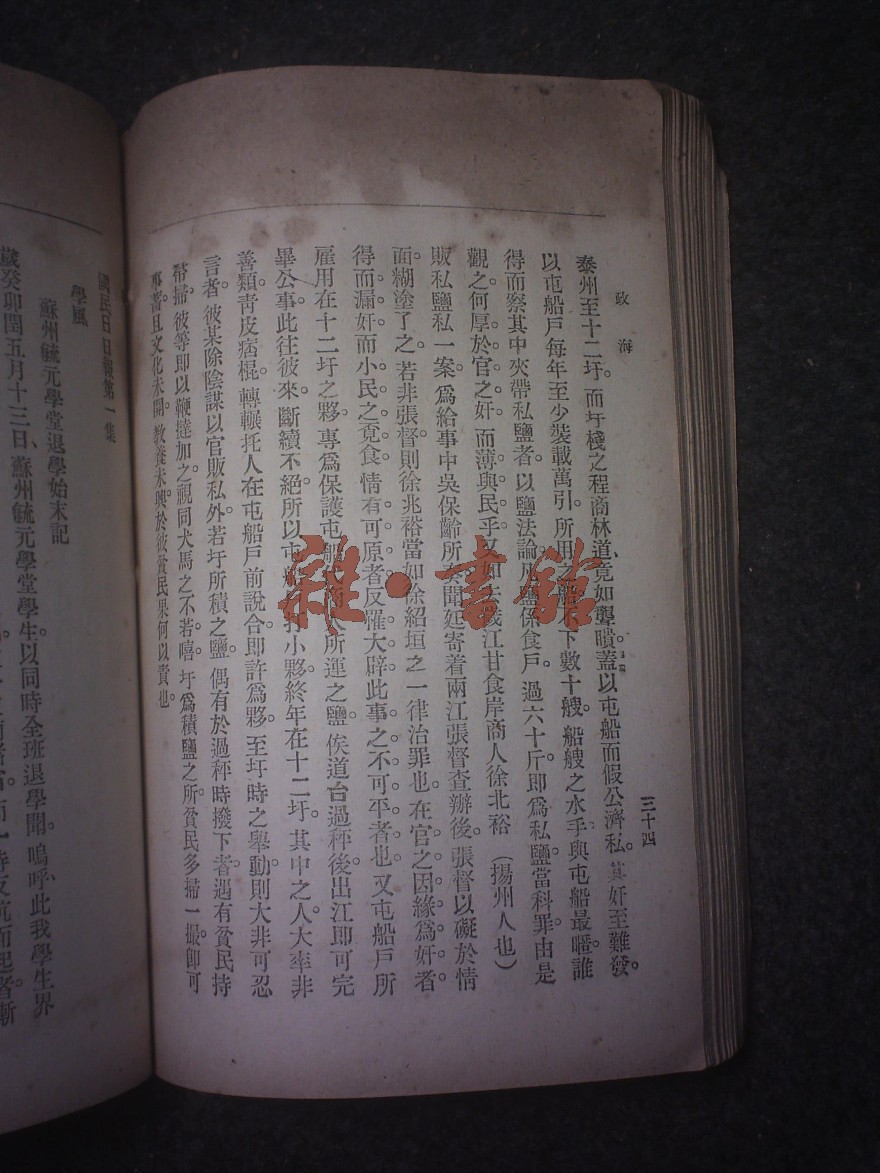 政海
三十四
泰州至十二圩。而圩棧之程商林道、竟如聾聵。蓋以屯船而假公濟私。其奸至難發。
以屯船戶每年至少裝載萬引。所用之船不下數十艘。船艘之水手與屯船最暱。誰
得而察其中夾帶私鹽者。以鹽法論。凡鹽係食戶。過六十斤。即爲私鹽。當科罪。由是
觀之。何厚於官之奸。而薄與民乎。又如去歲江甘食岸商人徐北裕（揚州人也）
販私鹽私一案。爲給事中吳保齡所奏聞。廷寄着兩江張督查辦後。張督以礙於情
面。糊塗了之。若非張督則徐兆裕當如徐紹垣之一律治罪也。在官之因緣爲奸者。
得而漏奸。而小民之覓食。情有可原者。反罹大辟。此事之不可平者也。又屯船戶所
雇用在十二圩之夥。專爲保護屯船 所運之鹽。俟道台過秤後。出江即可完
畢公事。此往彼來。斷續不絕。所以屯船 小夥。終年在十二圩。其中之人。大率非
善類。靑皮痞棍。轉輾托人在屯船戶前說合。即許爲夥。至圩時之舉動。則大非可忍
言者。彼某除陰謀以官販私外。若圩所積之鹽。偶有於過秤時撥下者。遇有貧民持
帚掃。彼等即以鞭撻加之。視同犬馬之不若。嘻。圩爲積鹽之所。貧民多掃一撮。卽可
事畜。且文化未開。敎養未興。於彼貧民果何以責也。
國民日日報第一集
學風
蘇州毓元學堂退學始末記
歲癸卯閏五月十三日、蘇州毓元學堂學生。以同時全班退學聞。嗚呼、此我學生界
而一時反抗而起者。漸
雜·書館